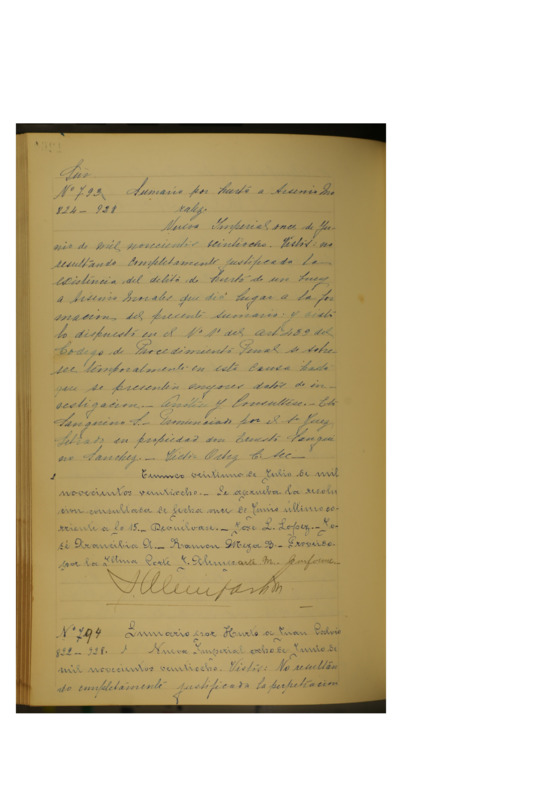 Nº 793 Sumario por hurto a Arsenio Mo
824 - 928 rales.
Nueva Imperial, once de Ju
nio de mil novecientos veintiocho.- Vistos: no
resultando completamente justificada la
existencia del delito de hurto de un buey
a Arsenio Morales que dió lugar a la for
macion del presente sumario: y visto
lo dispuesto en el Nº 1º del art. 432 del
Codigo de Procedimiento Penal se sobre-
see temporalmente en esta causa hasta
que se presenten mejores datos de in-
vestigacion.- Anótese y Consúltese.-
Sanguino S.- Pronunciada por el Juez
Letrado en propiedad don Ernesto Sangui
no Sanchez.- Victor Ortiz C. Sec.-
Temuco veintiuno de Julio de mil
novecientos veintiocho.- Se aprueba la resolu
cion consultada de fecha once de Junio último co-
rriente a fs 15.- Devuélvase.- José L. Lopez.- Jo-
sé A.- Ramon Meza B.- Proveido
por la Iltma Corte. J. M. conforme

Nº 794 Sumario por Hurto a Juan
822 - 928. Nueva Imperial ocho de Junio de
mil novecientos veintiocho. Vistos: No resultan
do completamente justificada la perpetracion